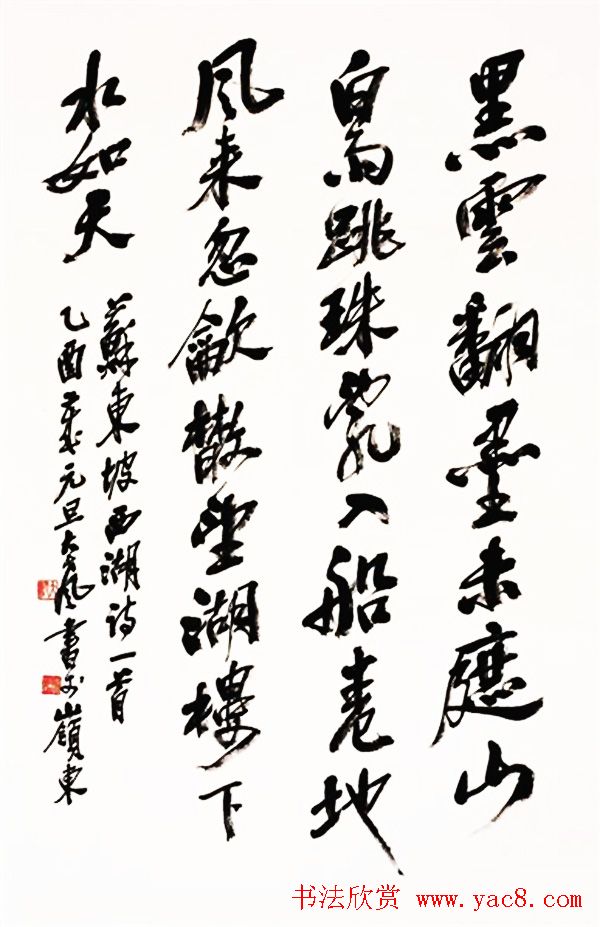 黑雲翻墨未遮山
白雨跳珠亂入船卷地
風来忽龡散望湖樓下
水如天
蘇東坡西湖诗一首
乙酉歲元旦大風書於嶺東
书法欣赏 www.yac8.com